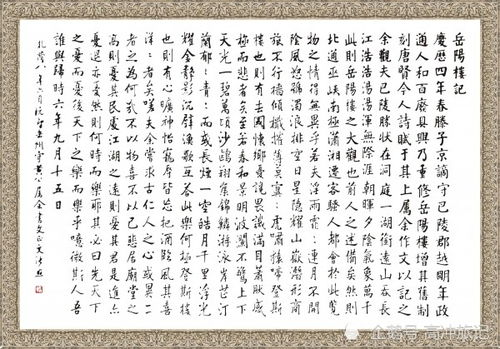 岳陽樓記
慶歷四年春滕子京謫守巴陵郡越明年政
通人和百廢具興乃重修岳陽樓增其舊制
刻唐賢今人詩賦于其上屬余作文以記之
余觀夫巴陵勝狀在洞庭一湖銜遠山吞長
江浩浩湯湯橫無際涯朝暉夕陰氣象萬千
此則岳陽樓之大觀也前人之述備矣然則
北通巫峽南極瀟湘遷客騷人都會於此覽
物之情得無異乎若夫淫雨霏霏連月不開
陰風怒號濁浪排空日星隱耀山嶽潛形商
旅不行檣傾楫摧薄暮冥冥虎嘯猿啼登斯
樓也則有去國懷鄉憂讒畏譏滿目蕭然感
極而悲者矣至若春和景明波瀾不驚上下
天光一碧萬頃沙鷗翔集錦鱗游泳岸芷汀
蘭郁:青:而或長煙一空皓月千里浮光
耀金靜影沉璧漁歌互答此樂何極登斯樓
也則有心曠神怡寵辱皆忘把酒臨風其喜
洋:者矣嗟夫余嘗求古仁人之心或異二
者之為何哉不以物喜不以己悲居廟堂之
高則憂其民處江湖之遠則憂其君是進亦
憂退亦憂然則何時而樂耶其必曰先天下
之憂而憂後天下之樂而樂乎噫微斯人吾
誰與歸時六年九月十五日
企鹅号 高冲旅记